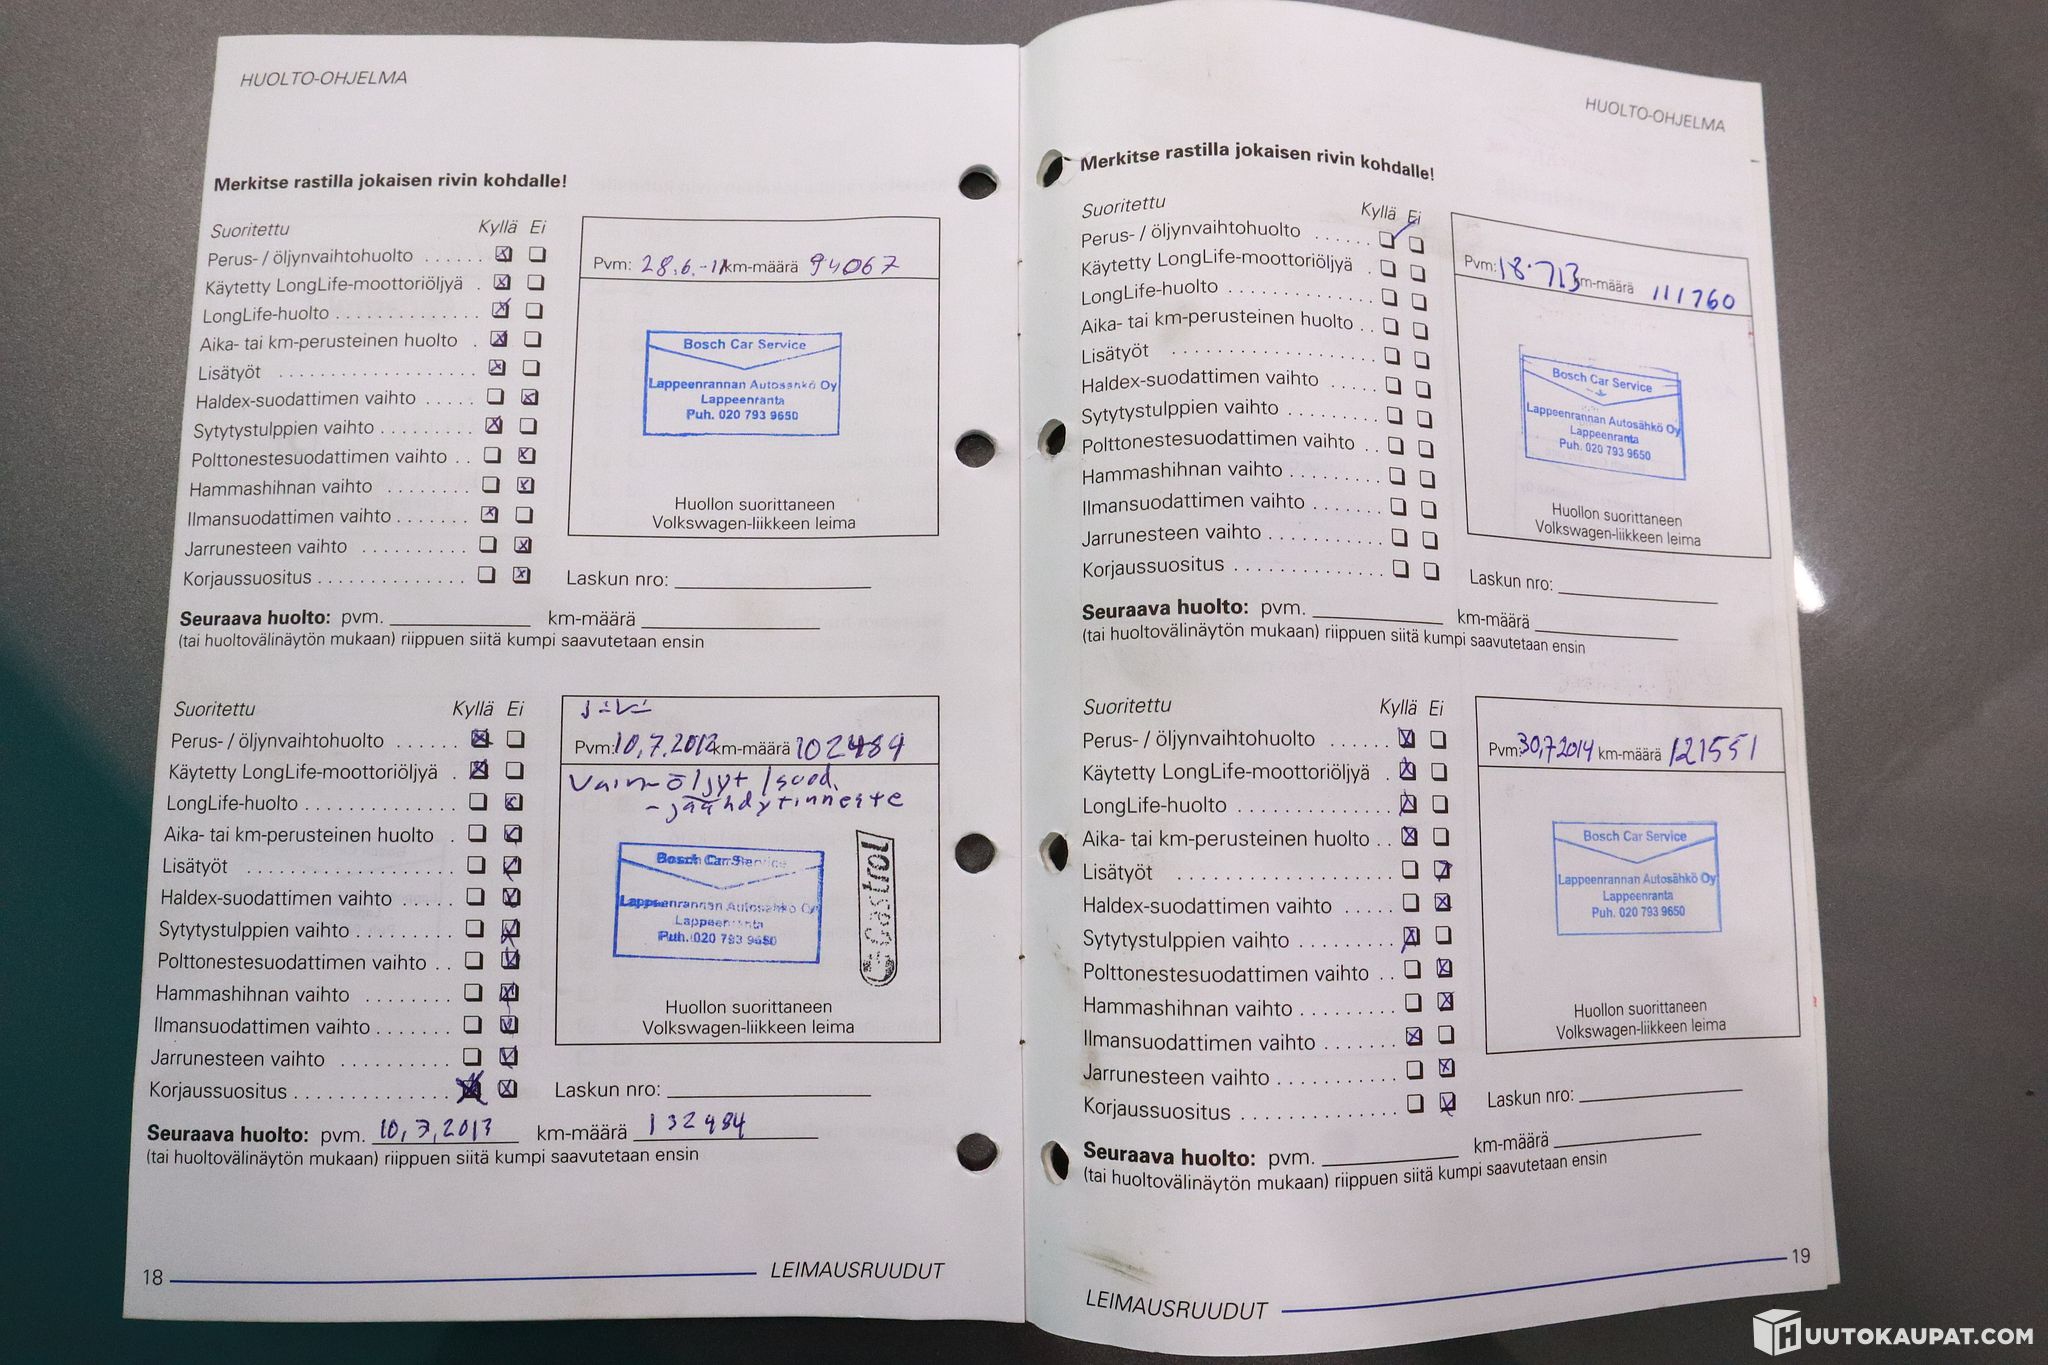 HUOLTO-OHJELMA
Merkitse rastilla jokaisen rivin kohdalle!
Suoritettu Kyllä Ei
Perus- / öljynvaihtohuolto ......
Käytetty LongLife-moottoriöljyä .
LongLife-huolto ..............
Aika- tai km-perusteinen huolto .
Lisätyöt ...................
Haldex-suodattimen vaihto .....
Sytytystulppien vaihto .........
Polttonestesuodattimen vaihto ..
Hammashihnan vaihto ........
Ilmansuodattimen vaihto .......
Jarrunesteen vaihto ..........
Korjaussuositus ..............
Pvm: 28.6.-11 km-määrä 94067
Bosch Car Service
Lappeenrannan Autosähkö Oy
Lappeenranta
Puh. 020 793 9650
Huollon suorittaneen
Volkswagen-liikkeen leima
Laskun nro:
Seuraava huolto: pvm. km-määrä
(tai huoltovälinäytön mukaan) riippuen siitä kumpi saavutetaan ensin
Suoritettu Kyllä Ei
Perus- / öljynvaihtohuolto ......
Käytetty LongLife-moottoriöljyä .
LongLife-huolto ..............
Aika- tai km-perusteinen huolto .
Lisätyöt ...................
Haldex-suodattimen vaihto .....
Sytytystulppien vaihto .........
Polttonestesuodattimen vaihto ..
Hammashihnan vaihto ........
Ilmansuodattimen vaihto .......
Jarrunesteen vaihto ..........
Korjaussuositus ..............
Pvm: 10.7.2012 km-määrä 102484
Vain öljyt / suod.
- jäähdytinneste
Bosch Car Service
Lappeenrannan Autosähkö Oy
Lappeenranta
Puh. 020 793 9650
Castrol
Huollon suorittaneen
Volkswagen-liikkeen leima
Laskun nro:
Seuraava huolto: pvm. 10,7,2013 km-määrä 132484
(tai huoltovälinäytön mukaan) riippuen siitä kumpi saavutetaan ensin
18 LEIMAUSRUUDUT
HUOLTO-OHJELMA
Merkitse rastilla jokaisen rivin kohdalle!
Suoritettu Kyllä Ei
Perus- / öljynvaihtohuolto ......
Käytetty LongLife-moottoriöljyä .
LongLife-huolto ..............
Aika- tai km-perusteinen huolto ..
Lisätyöt ...................
Haldex-suodattimen vaihto .....
Sytytystulppien vaihto .........
Polttonestesuodattimen vaihto ..
Hammashihnan vaihto ........
Ilmansuodattimen vaihto .......
Jarrunesteen vaihto ..........
Korjaussuositus ..............
Pvm: 18.7.13 km-määrä 111760
Bosch Car Service
Lappeenrannan Autosähkö Oy
Lappeenranta
Puh. 020 793 9650
Huollon suorittaneen
Volkswagen-liikkeen leima
Laskun nro:
Seuraava huolto: pvm. km-määrä
(tai huoltovälinäytön mukaan) riippuen siitä kumpi saavutetaan ensin
Suoritettu Kyllä Ei
Perus- / öljynvaihtohuolto ......
Käytetty LongLife-moottoriöljyä .
LongLife-huolto ..............
Aika- tai km-perusteinen huolto ..
Lisätyöt ...................
Haldex-suodattimen vaihto .....
Sytytystulppien vaihto .........
Polttonestesuodattimen vaihto ..
Hammashihnan vaihto ........
Ilmansuodattimen vaihto .......
Jarrunesteen vaihto ..........
Korjaussuositus ..............
Pvm: 30,7 2014 km-määrä 121551
Bosch Car Service
Lappeenrannan Autosähkö Oy
Lappeenranta
Puh. 020 793 9650
Huollon suorittaneen
Volkswagen-liikkeen leima
Laskun nro:
Seuraava huolto: pvm. km-määrä
(tai huoltovälinäytön mukaan) riippuen siitä kumpi saavutetaan ensin
LEIMAUSRUUDUT 19
HUUTOKAUPAT.COM